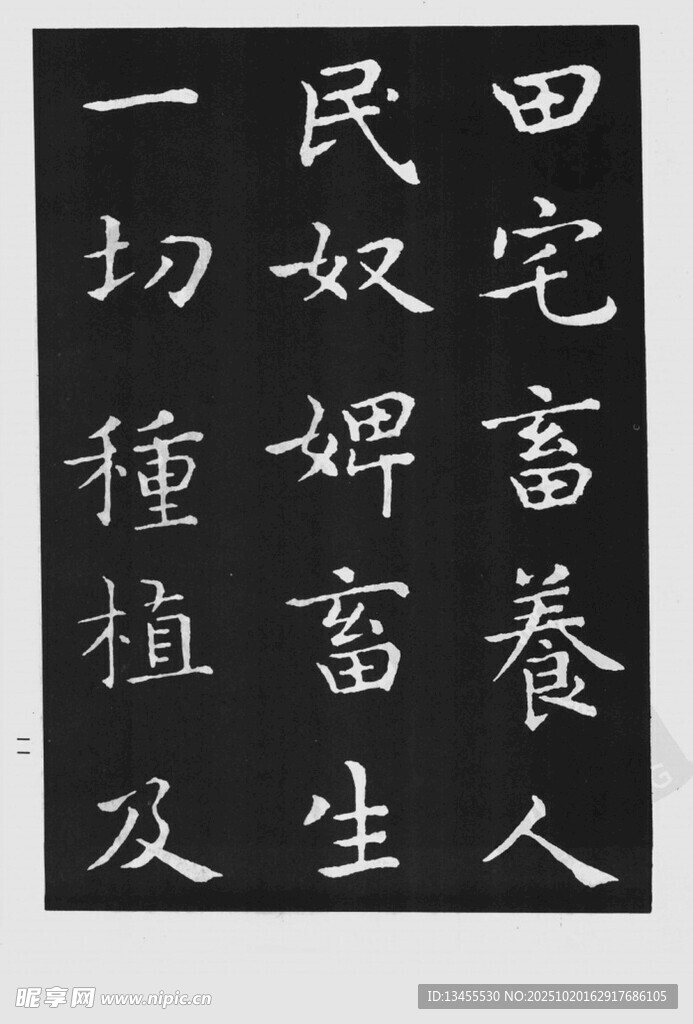 田宅畜養人
民奴婢畜生
一切種植及
二
昵享网 www.nipic.cn
ID:13455530 NO:20251020162917686105